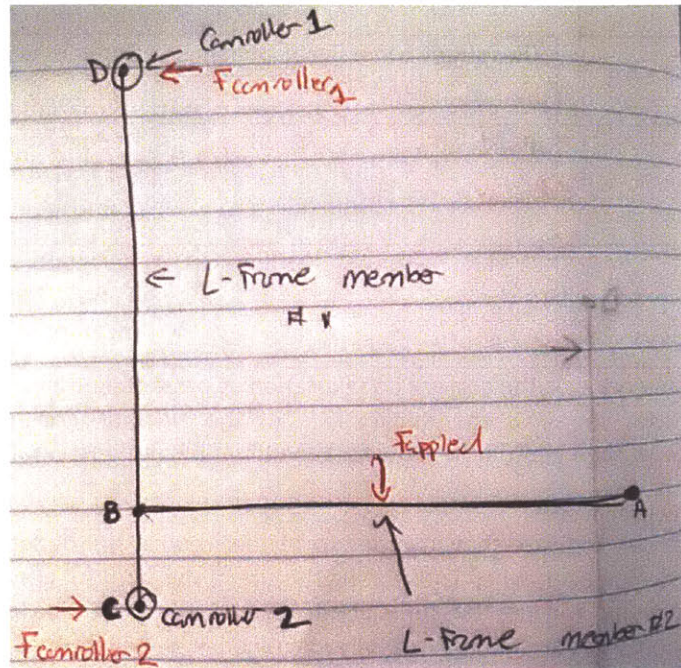 Camroller 1
D
Fcamroller1
← L-Frame member
#1
D
Fapplied
B
A
C
camroller 2
Fcamroller 2
L-Frame member #2